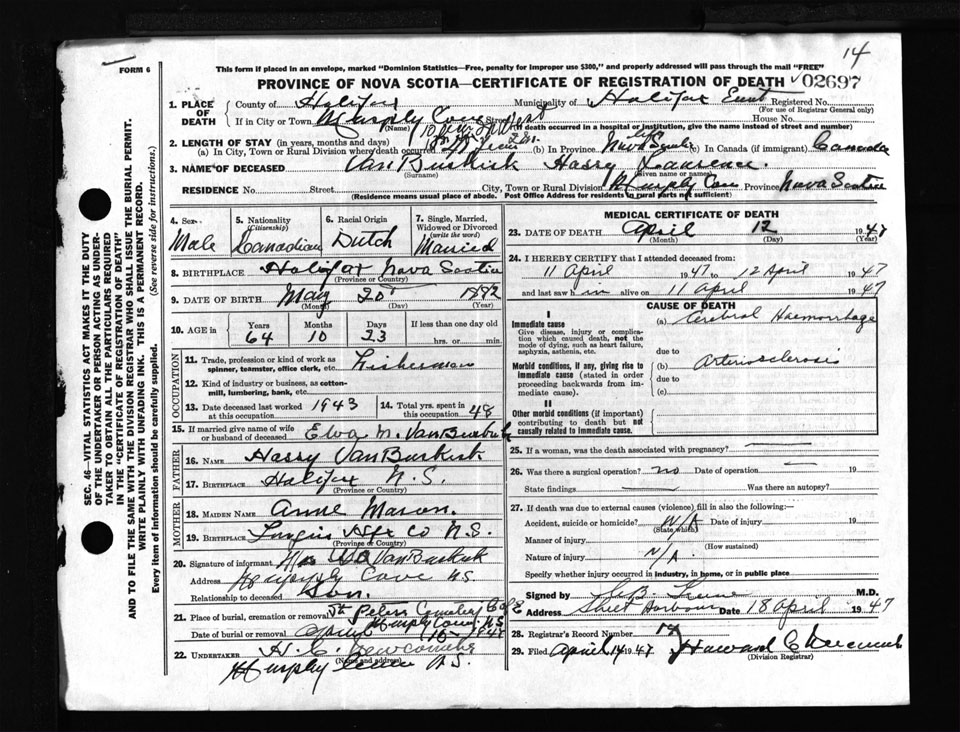 14
FORM 6
This form if placed in an envelope, marked "Dominion Statistics—Free, penalty for improper use $300," and properly addressed will pass through the mail "FREE"
PROVINCE OF NOVA SCOTIA—CERTIFICATE OF REGISTRATION OF DEATH 02697
SEC. 46—VITAL STATISTICS ACT MAKES IT THE DUTY
OF THE UNDERTAKER OR PERSON ACTING AS UNDER-
TAKER TO OBTAIN ALL THE PARTICULARS REQUIRED
IN THE "CERTIFICATE OF REGISTRATION OF DEATH"
AND TO FILE THE SAME WITH THE DIVISION REGISTRAR WHO SHALL ISSUE THE BURIAL PERMIT.
WRITE PLAINLY WITH UNFADING INK. THIS IS A PERMANENT RECORD.
Every item of Information should be carefully supplied. (See reverse side for instructions.)
1. PLACE OF DEATH County of Halifax Municipality of Halifax East Registered No.
(For use of Registrar General only)
If in City or Town Murphy Cove Street House No.
(Name) (If death occurred in a hospital or institution, give the name instead of street and number)
2. LENGTH OF STAY (in years, months and days)
(a) In City, Town or Rural Division where death occurred (b) In Province Nova Scotia (c) In Canada (if immigrant) Canada
3. NAME OF DECEASED Van Buskirk Harry Lawrence
(Surname) (Given name or names)
RESIDENCE No. Street City, Town or Rural Division Murphy Cove Province Nova Scotia
(Residence means usual place of abode. Post Office Address for residents in rural parts not sufficient)
4. Sex Male
5. Nationality (Citizenship) Canadian
6. Racial Origin Dutch
7. Single, Married, Widowed or Divorced (write the word) Married
8. BIRTHPLACE Halifax Nova Scotia
(Province or Country)
9. DATE OF BIRTH May 20 1882
(Month) (Day) (Year)
10. AGE in Years 64 Months 10 Days 23 If less than one day old
hrs. or min.
OCCUPATION
11. Trade, profession or kind of work as spinner, teamster, office clerk, etc. Fisherman
12. Kind of industry or business, as cotton-mill, lumbering, bank, etc.
13. Date deceased last worked at this occupation 1943 14. Total yrs. spent in this occupation 48
15. If married give name of wife or husband of deceased Elva M. Van Buskirk
FATHER
16. NAME Harry Van Buskirk
17. BIRTHPLACE Halifax N.S.
(Province or Country)
MOTHER
18. MAIDEN NAME Anne Mason.
19. BIRTHPLACE Hfx Co N.S.
(Province or Country)
20. Signature of informant Van Buskirk
Address Murphy Cove NS
Relationship to deceased Son.
21. Place of burial, cremation or removal St Peters Cemetery C of E
Murphy Cove NS
Date of burial or removal April 1947
22. UNDERTAKER H. C. Newcombe
(Name and address)
Murphy Cove NS.
MEDICAL CERTIFICATE OF DEATH
23. DATE OF DEATH April 12 1947
(Month) (Day) (Year)
24. I HEREBY CERTIFY that I attended deceased from:
11 April 1947 to 12 April 1947
and last saw him alive on 11 April 1947
CAUSE OF DEATH
I
Immediate cause (a) Cerebral Haemorrhage
Give disease, injury or complication which caused death, not the mode of dying, such as heart failure, asphyxia, asthenia, etc.
due to
Morbid conditions, if any, giving rise to immediate cause (stated in order proceeding backwards from immediate cause). (b) Arteriosclerosis
due to
(c)
II
Other morbid conditions (if important) contributing to death but not causally related to immediate cause.
25. If a woman, was the death associated with pregnancy? —
26. Was there a surgical operation? no Date of operation — 19
State findings — Was there an autopsy?
27. If death was due to external causes (violence) fill in also the following:—
Accident, suicide or homicide? N/A Date of injury 19
(State which)
Manner of injury
(How sustained)
Nature of injury N/A.
Specify whether injury occurred in industry, in home, or in public place
Signed by M.D.
Address Sheet Harbour Date 18 April 1947
28. Registrar's Record Number 14
29. Filed April 14 1947 Howard C Newcomb
(Division Registrar)